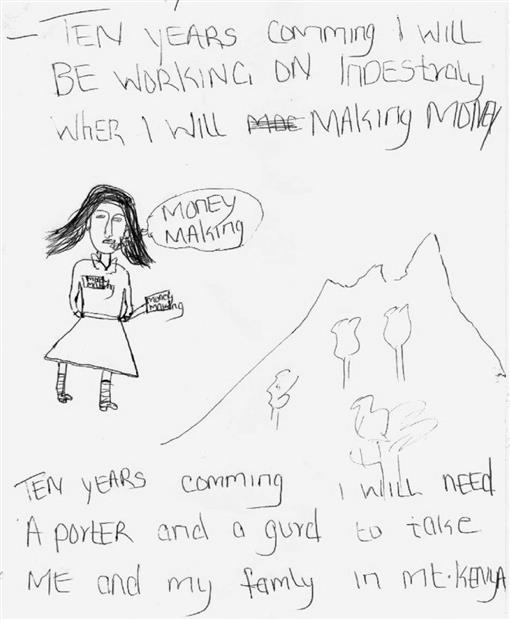 — TEN YEARS comming I WILL
BE WORKING ON INDESTRALY
WHER I WILL MAKING MONEY
MONEY
MAKING
MONEY
MAKING
TEN YEARS comming I WILL NEED
A PORTER and a gurd to take
ME and my famly in Mt. KENYA